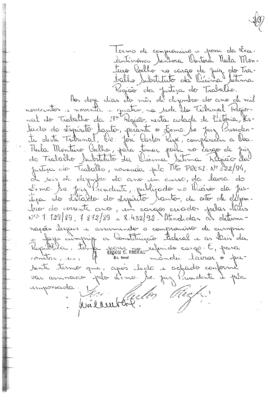 Termo de compromisso e posse da Ex
celentíssima Senhora Doutora Maila Mon
teiro Coelho no cargo de Juiz do Tra
balho Substituto da Décima Sétima
Região da Justiça do Trabalho.
Aos doze dias do mês de dezembro do ano de mil
novecentos e noventa e quatro, na sede do Tribunal Regio
nal do Trabalho da 17ª Região, nesta cidade de Vitória, Es
tado do Espírito Santo, perante o Exmo Sr. Juiz Presiden
te deste Tribunal, Dr. José Carlos Rizk, compareceu a Dra
Maila Monteiro Coelho, para tomar posse no cargo de Juiz
do Trabalho Substituto da Décima Sétima Região da
Justiça do Trabalho, nomeada pelo Ato PRESI. Nº
de seis de dezembro do ano em curso, da lavra do
Exmo Sr. Juiz Presidente, publicado no Diário da Jus
tiça do Estado do Espírito Santo, de oito de dezem
bro do corrente ano, em cargos criados pelas Leis
Nºs
nações legais e assumindo o compromisso de cumprir
e fazer cumprir a Constituição Federal e as Leis da
República, no referido cargo. E, para
constar, eu, mandei lavrar o pre
sente termo que, após lido e achado conforme
vai assinado pelo Exmo Sr. Juiz Presidente e pela
empossada.